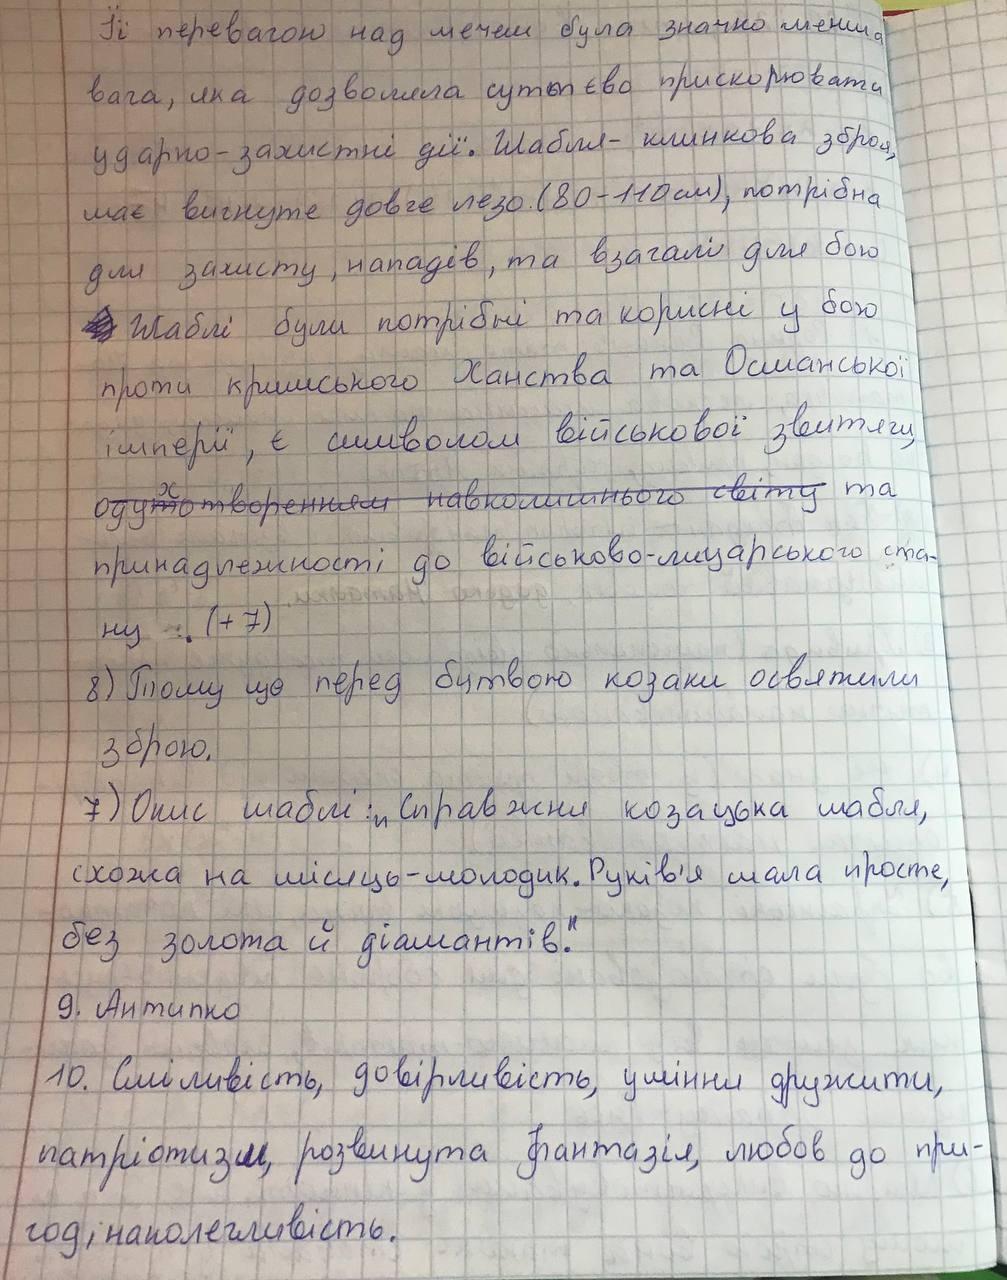 Її перевагою над мечем була значно менша
вага, яка дозволяла суттєво прискорювати
ударно-захистні дії. Шабля- клинкова зброя,
має вигнуте довге лезо.(80-110см), потрібна
для захисту, нападів, та взагалі для бою
Шаблі були потрібні та корисні у бою
проти кримського Ханства та Османської
імперії, є символом військової звитяги,
одухотворенням навколишнього світу та
принадлежності до військово-лицарського ста-
ну . (+7)
8) Тому що перед бутвою козаки освятили
зброю.
7) Опис шаблі: „Справжня козацька шабля,
схожа на місяць-молодик. Руків'я мала просте,
без золота й діамантів."
9. Антипко
10. Сміливість, довірливість, уміння дружити,
патріотизм, розвинута фантазія, любов до при-
год, наполегливість.